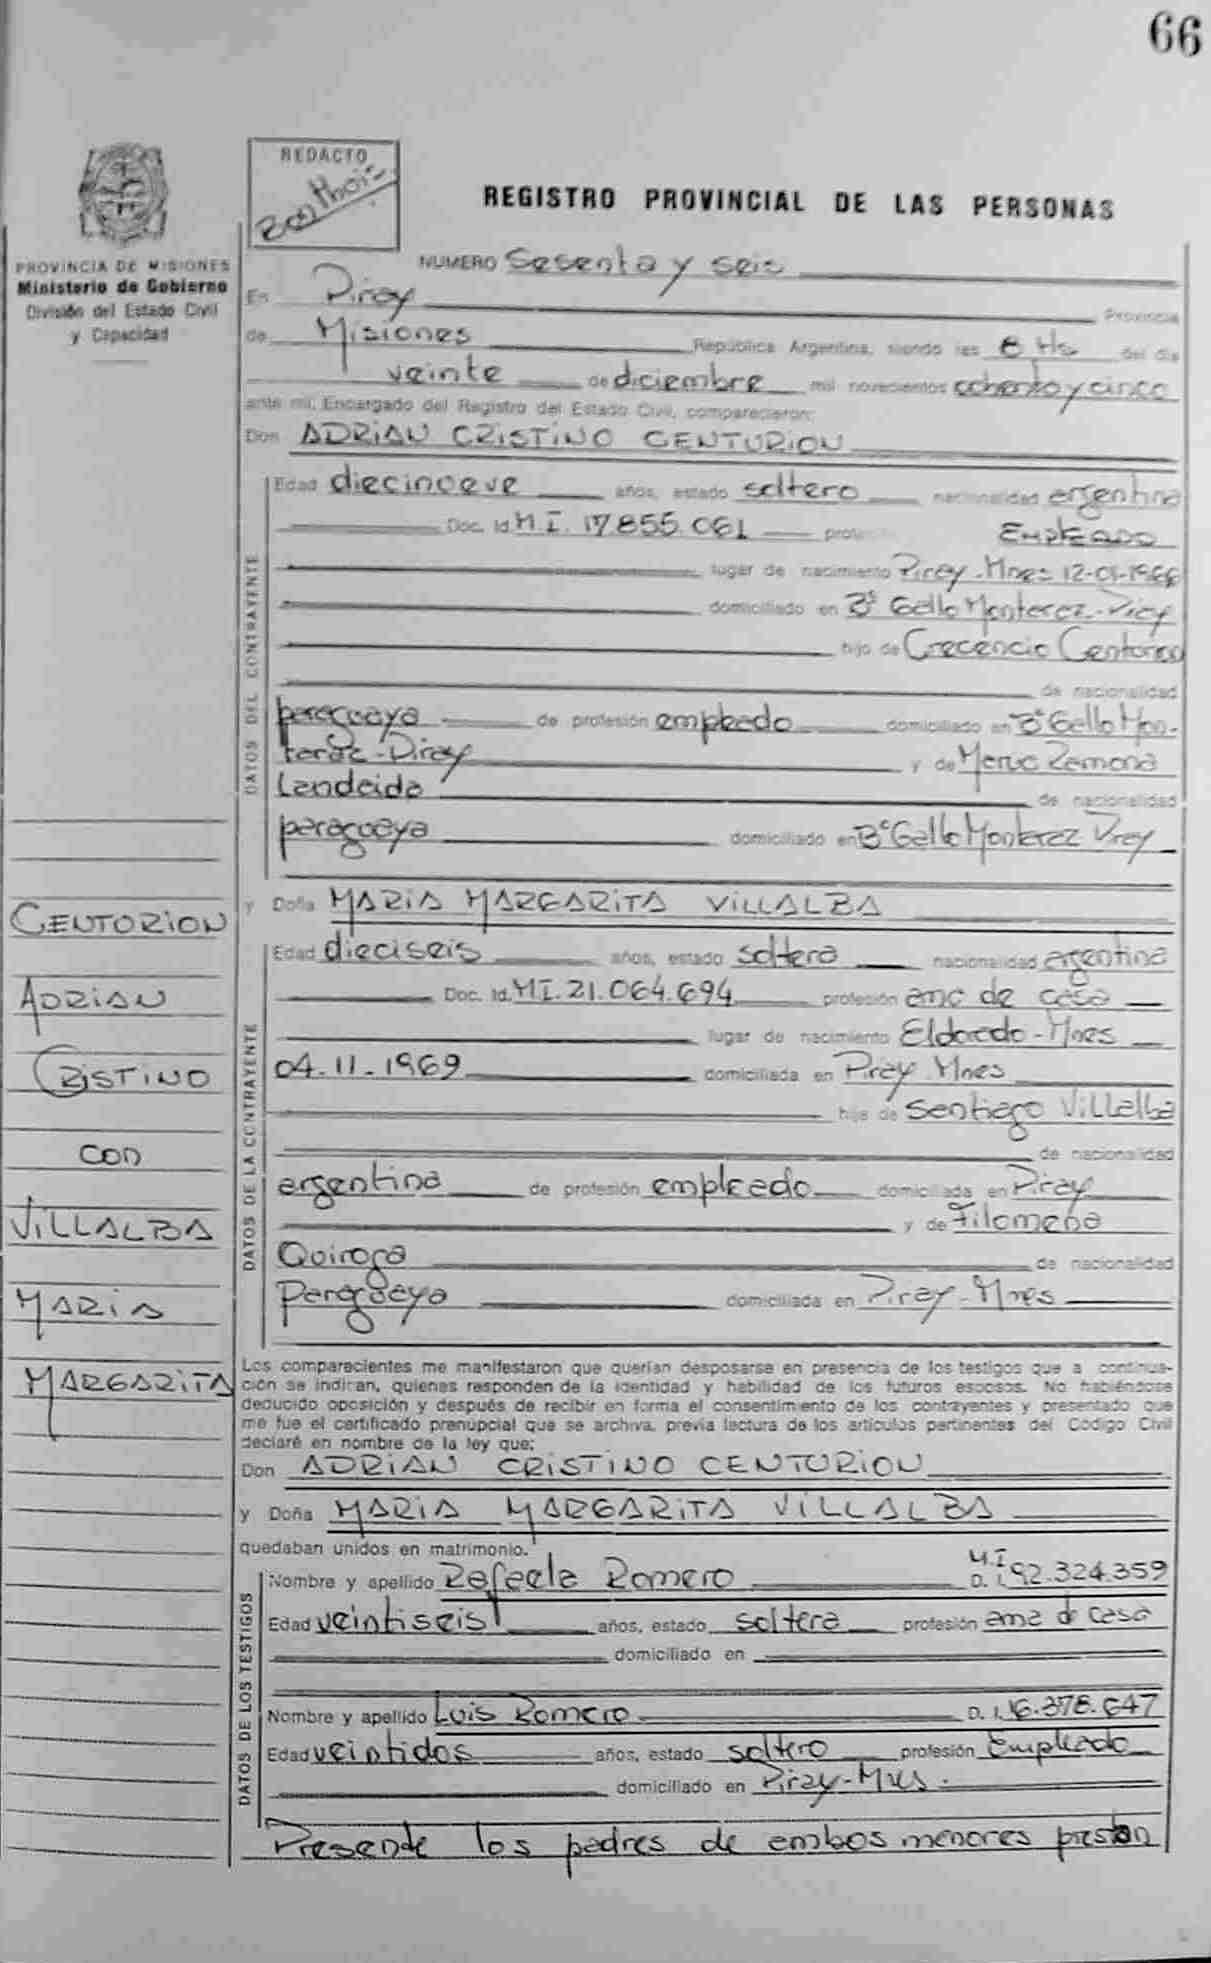 66
REDACTO
REGISTRO PROVINCIAL DE LAS PERSONAS
PROVINCIA DE MISIONES
Ministerio de Gobierno
División del Estado Civil
y Capacidad
NUMERO Sesenta y seis
En Piray Provincia
de Misiones República Argentina, siendo las 8 Hs del día
veinte de diciembre mil novecientos ochenta y cinco
ante mi, Encargado del Registro del Estado Civil, comparecieron:
Don ADRIAN CRISTINO CENTURION
DATOS DEL CONTRAYENTE
Edad diecinueve años, estado soltero nacionalidad argentina
Doc. Id. M.I. 17.855.061 EMPLEADO
lugar de nacimiento Piray-Mnes 12-01-1966
domiciliado en Bº Gallo Monterez-Piray
hijo de Crecencio Centurion
de nacionalidad
paraguaya de profesión empleado domiciliado en Bº Gallo Mon-
terez-Piray y de Ramona
de nacionalidad
paraguaya domiciliado en Bº Gallo Monterez Piray
y Doña MARIA MARGARITA VILLALBA
DATOS DE LA CONTRAYENTE
Edad dieciseis años, estado soltera nacionalidad argentina
Doc. Id. MI. 21.064.694 profesión ama de casa
lugar de nacimiento Eldorado-Mnes
04-11-1969 domiciliada en Piray Mnes
hija de Santiago Villalba
de nacionalidad
argentina de profesión empleado domiciliada en Piray
y de Filomena
Quiroga de nacionalidad
Paraguaya domiciliada en Piray-Mnes
CENTURION
ADRIAN
CRISTINO
CON
VILLALBA
MARIA
MARGARITA
Los comparecientes me manifestaron que querían desposarse en presencia de los testigos que a continua-
ción se indican, quienes responden de la identidad y habilidad de los futuros esposos. No habiéndose
deducido oposición y después de recibir en forma el consentimiento de los contrayentes y presentado que
me fue el certificado prenupcial que se archiva, previa lectura de los artículos pertinentes del Código Civil
declaré en nombre de la ley que:
Don ADRIAN CRISTINO CENTURION
y Doña MARIA MARGARITA VILLALBA
quedaban unidos en matrimonio.
DATOS DE LOS TESTIGOS
Nombre y apellido Rafaela Romero M.I. D.I. 92.324.359
Edad veintiseis años, estado soltera profesión ama de casa
domiciliado en
Nombre y apellido Luis Romero D. I. 16.378.647
Edad veintidos años, estado soltero profesión Empleado
domiciliado en Piray-Mnes.
Presende los padres de ambos menores prestan